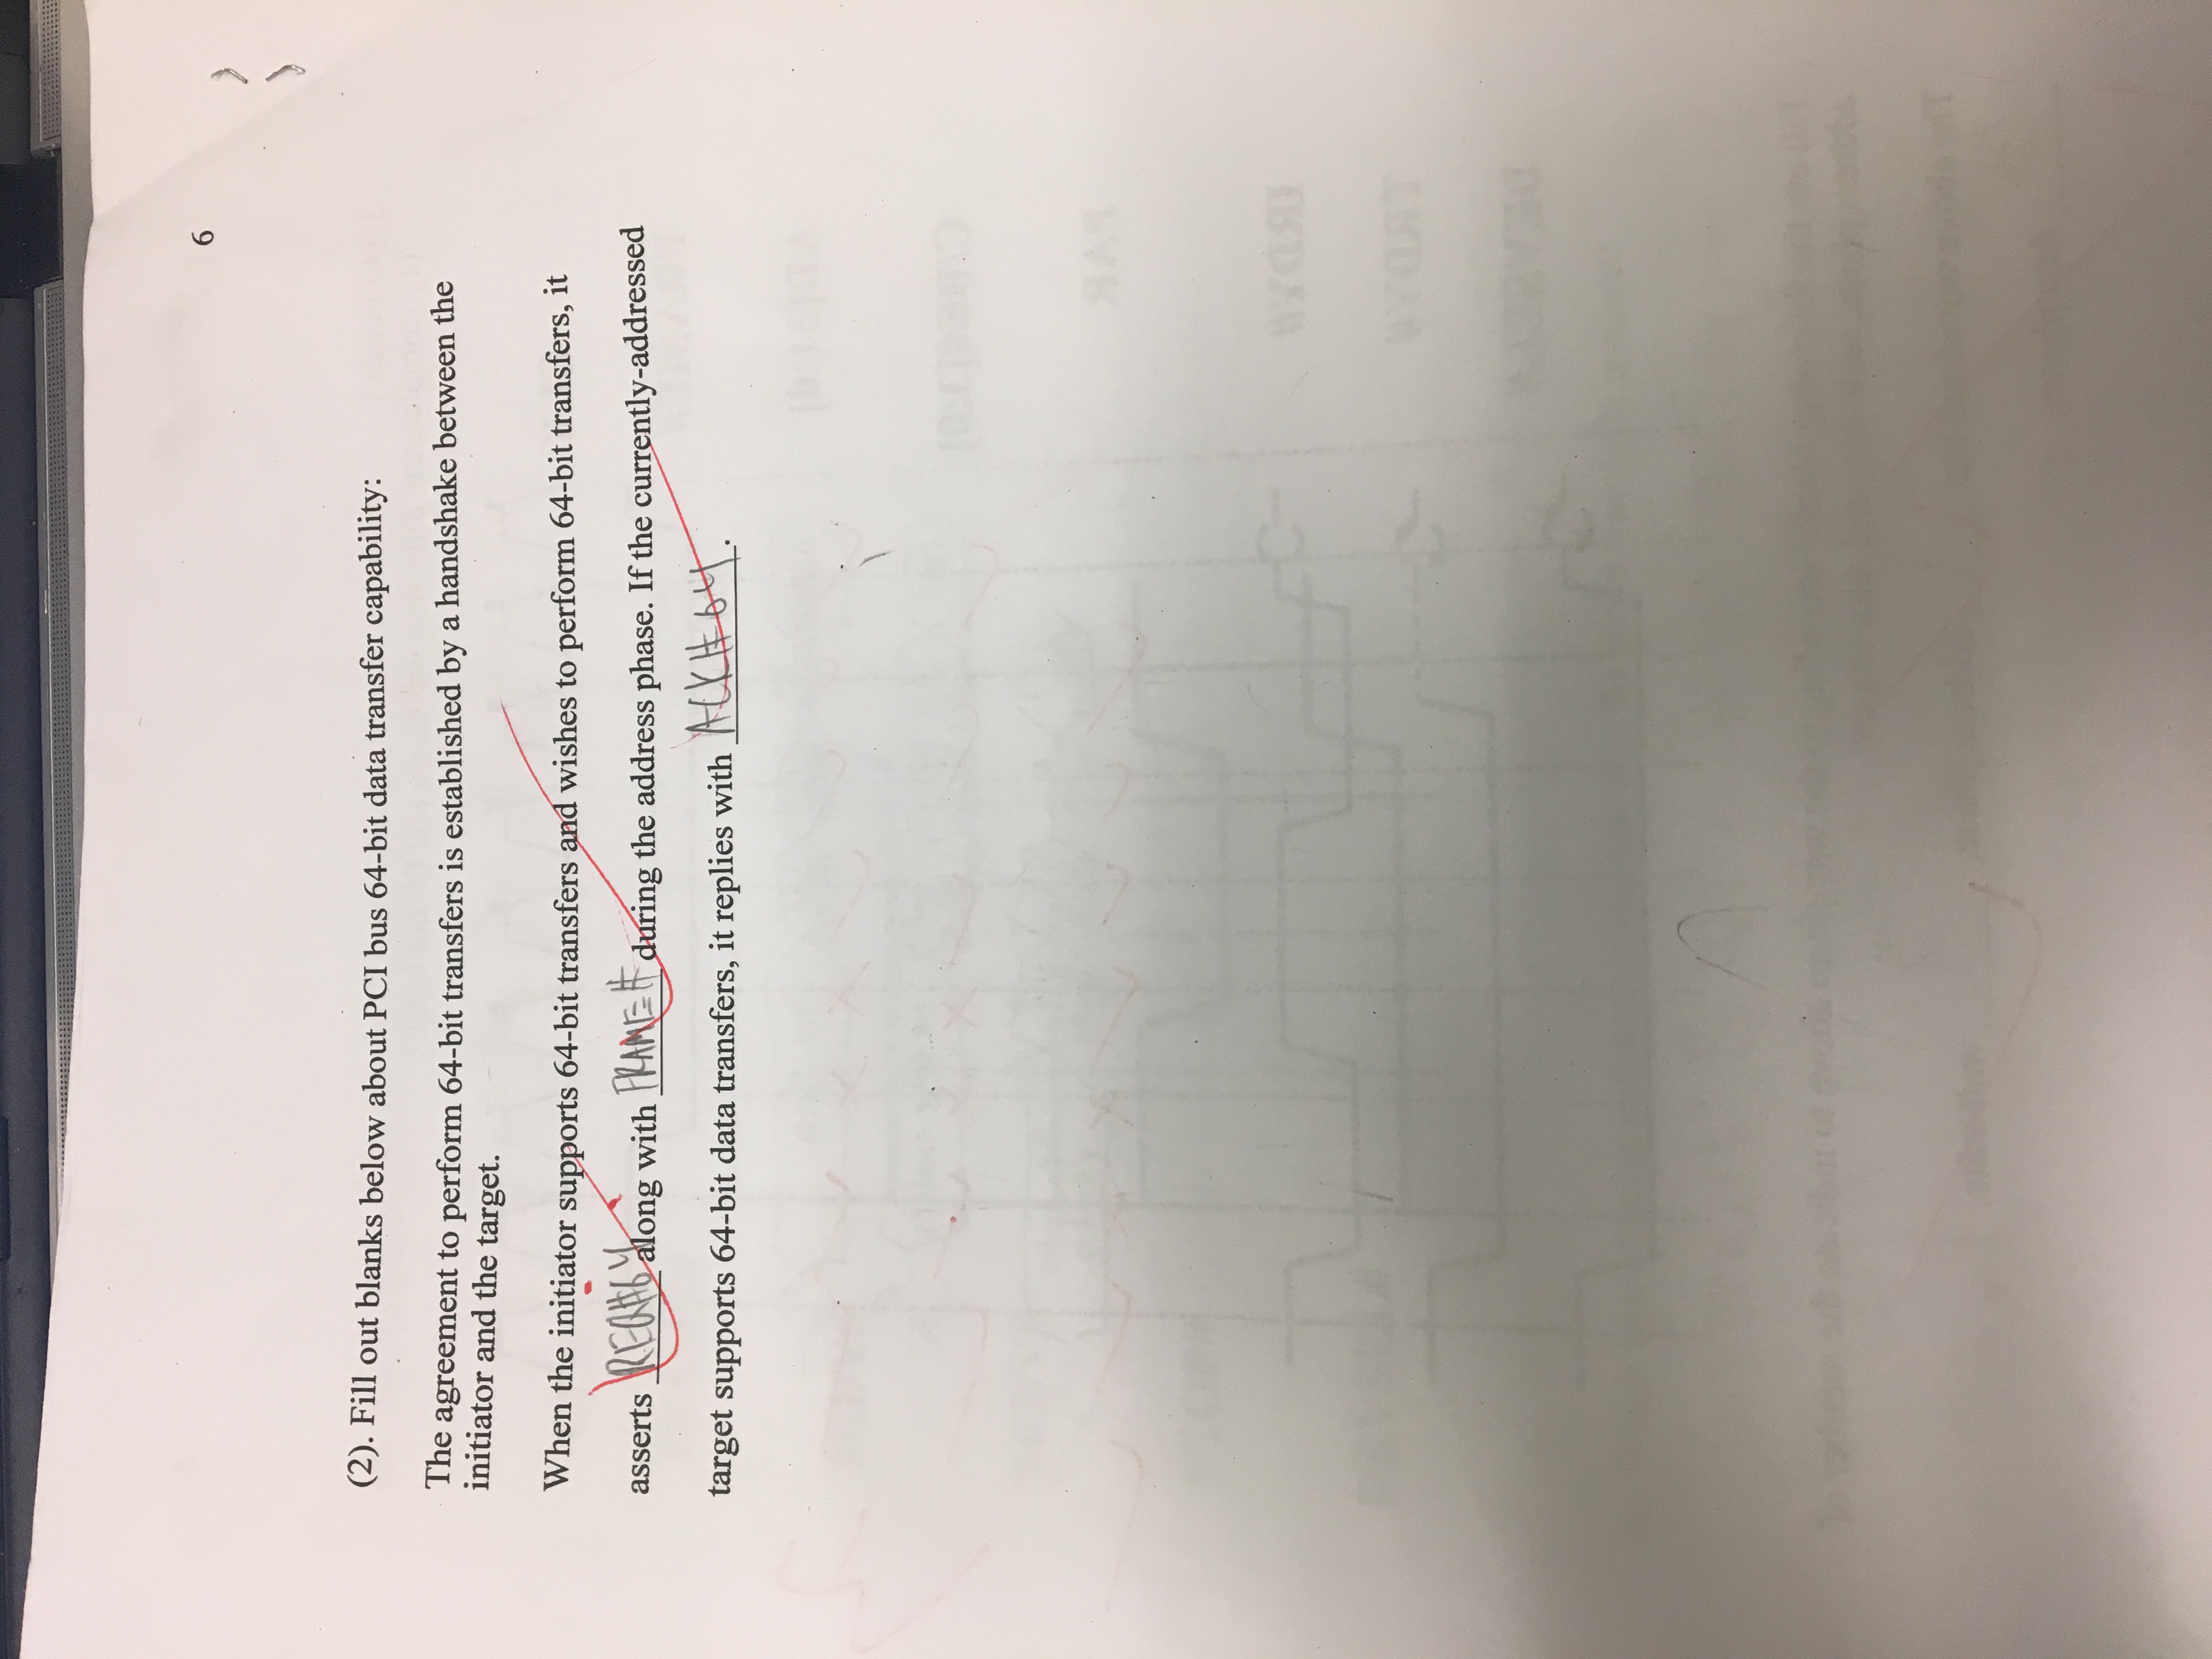 6
(2). Fill out blanks below about PCI bus 64-bit data transfer capability:
The agreement to perform 64-bit transfers is established by a handshake between the
initiator and the target.
When the initiator supports 64-bit transfers and wishes to perform 64-bit transfers, it
asserts REQ#64 along with FRAME# during the address phase. If the currently-addressed
target supports 64-bit data transfers, it replies with ACK#64.
AD[31:0]
PAR
IRDY#
TRDY#
DEVSEL#